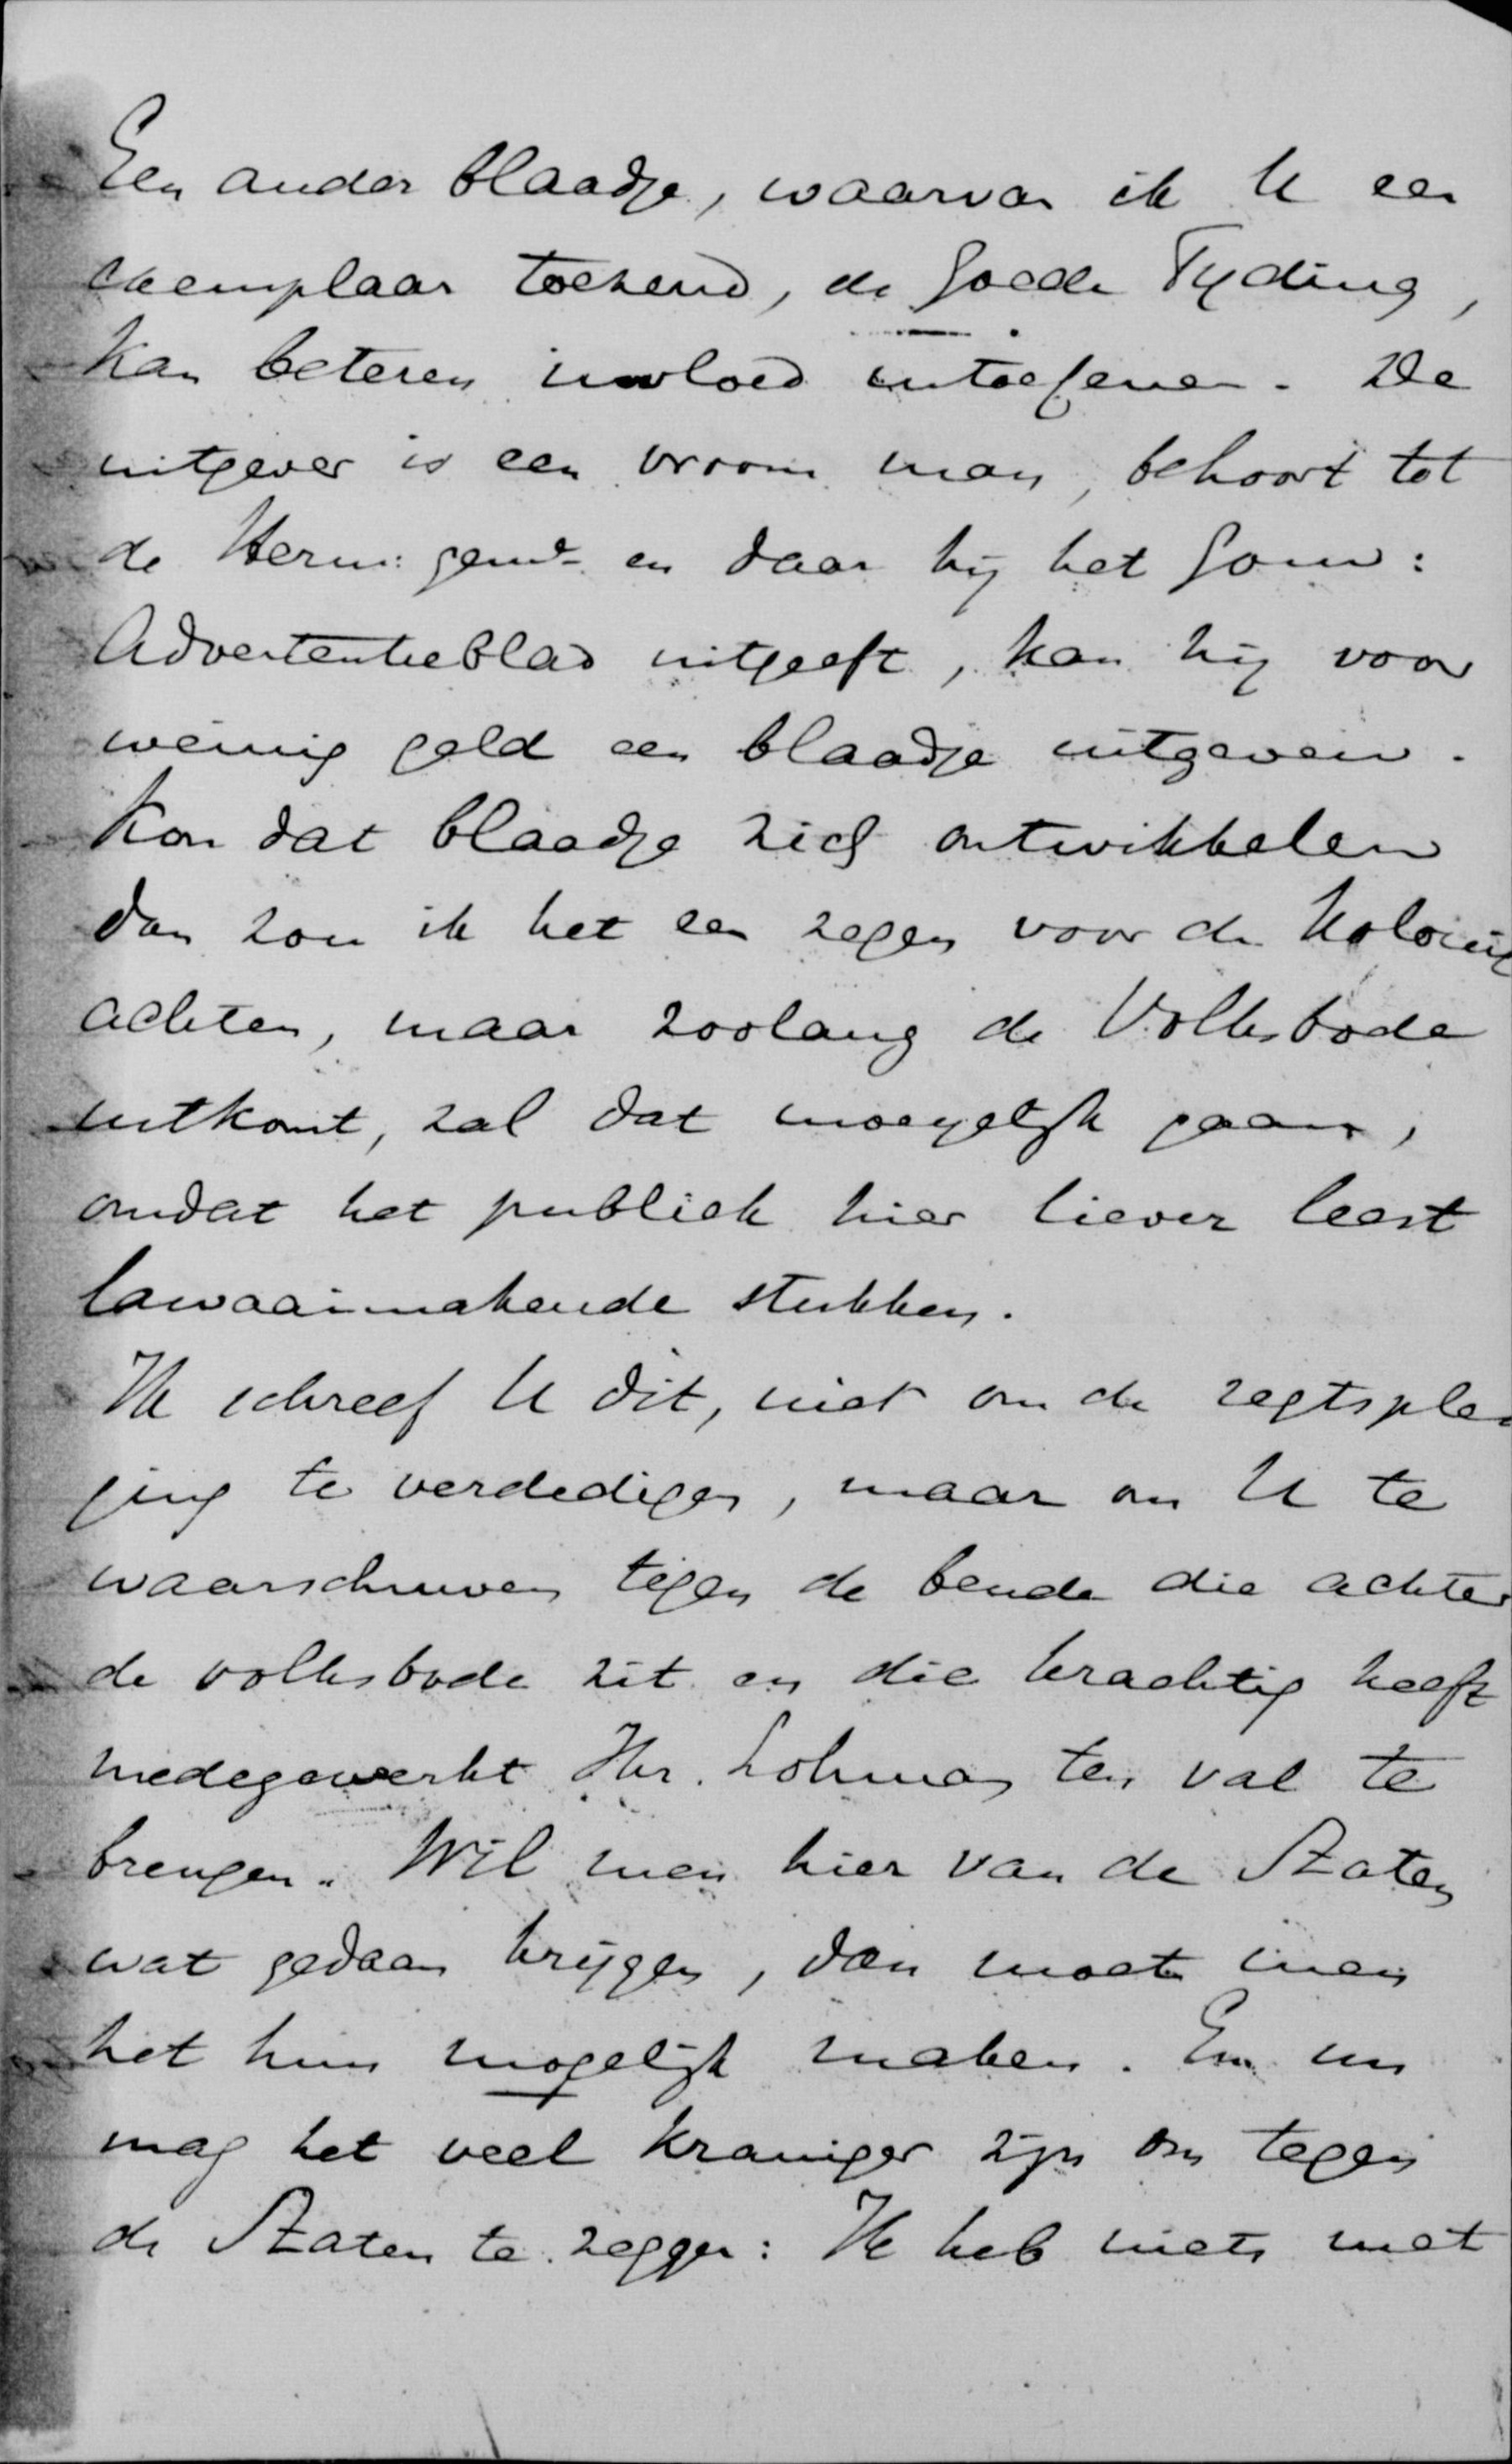 Een ander blaadje, waarvan ik U een
exemplaar toezend, de Goede Tyding,
kan beteren invloed uitoefenen. De
uitgever is een vroom man, behoort tot
de Hern: gemte en daar hij het Gouv:
Advertentieblad uitgeeft, kan hij voor
weinig geld een blaadje uitgeven.
Kon dat blaadje zich ontwikkelen
dan zou ik het een zegen voor de Kolonie
achten, maar zoolang de Volksbode
uitkomt, zal dat moeyelijk gaan,
omdat het publiek hier liever leest
lawaaimakende stukken.
Ik schreef U dit, niet om de regtsple
ging te verdedigen, maar om U te
waarschuwen tegen de bende die achter
de volksbode zit en die krachtig heeft
medegewerkt Jhr. Lohman ten val te
brengen. Wil men hier van de Staten
wat gedaan krijgen, dan moet men
het hun mogelijk maken. En nu
mag het veel kraniger zijn om tegen
de Staten te zeggen: Ik heb niets met